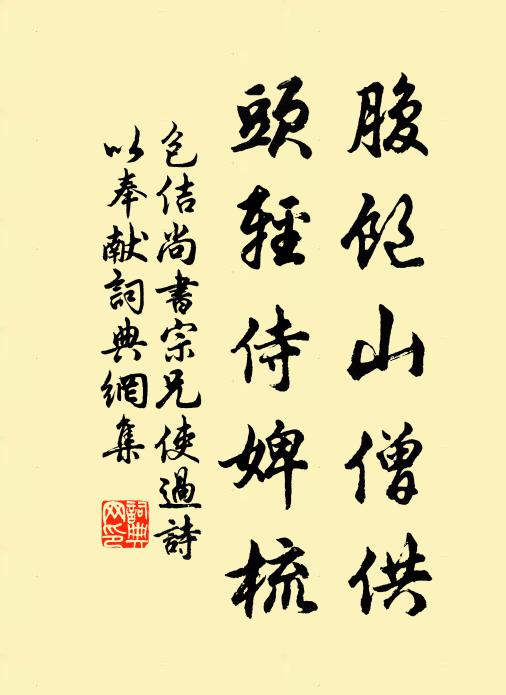 腹飽山僧供
頭輕侍婢梳
包佶尚書宗兄使過詩
以奉献詞典網集
詞典
网印